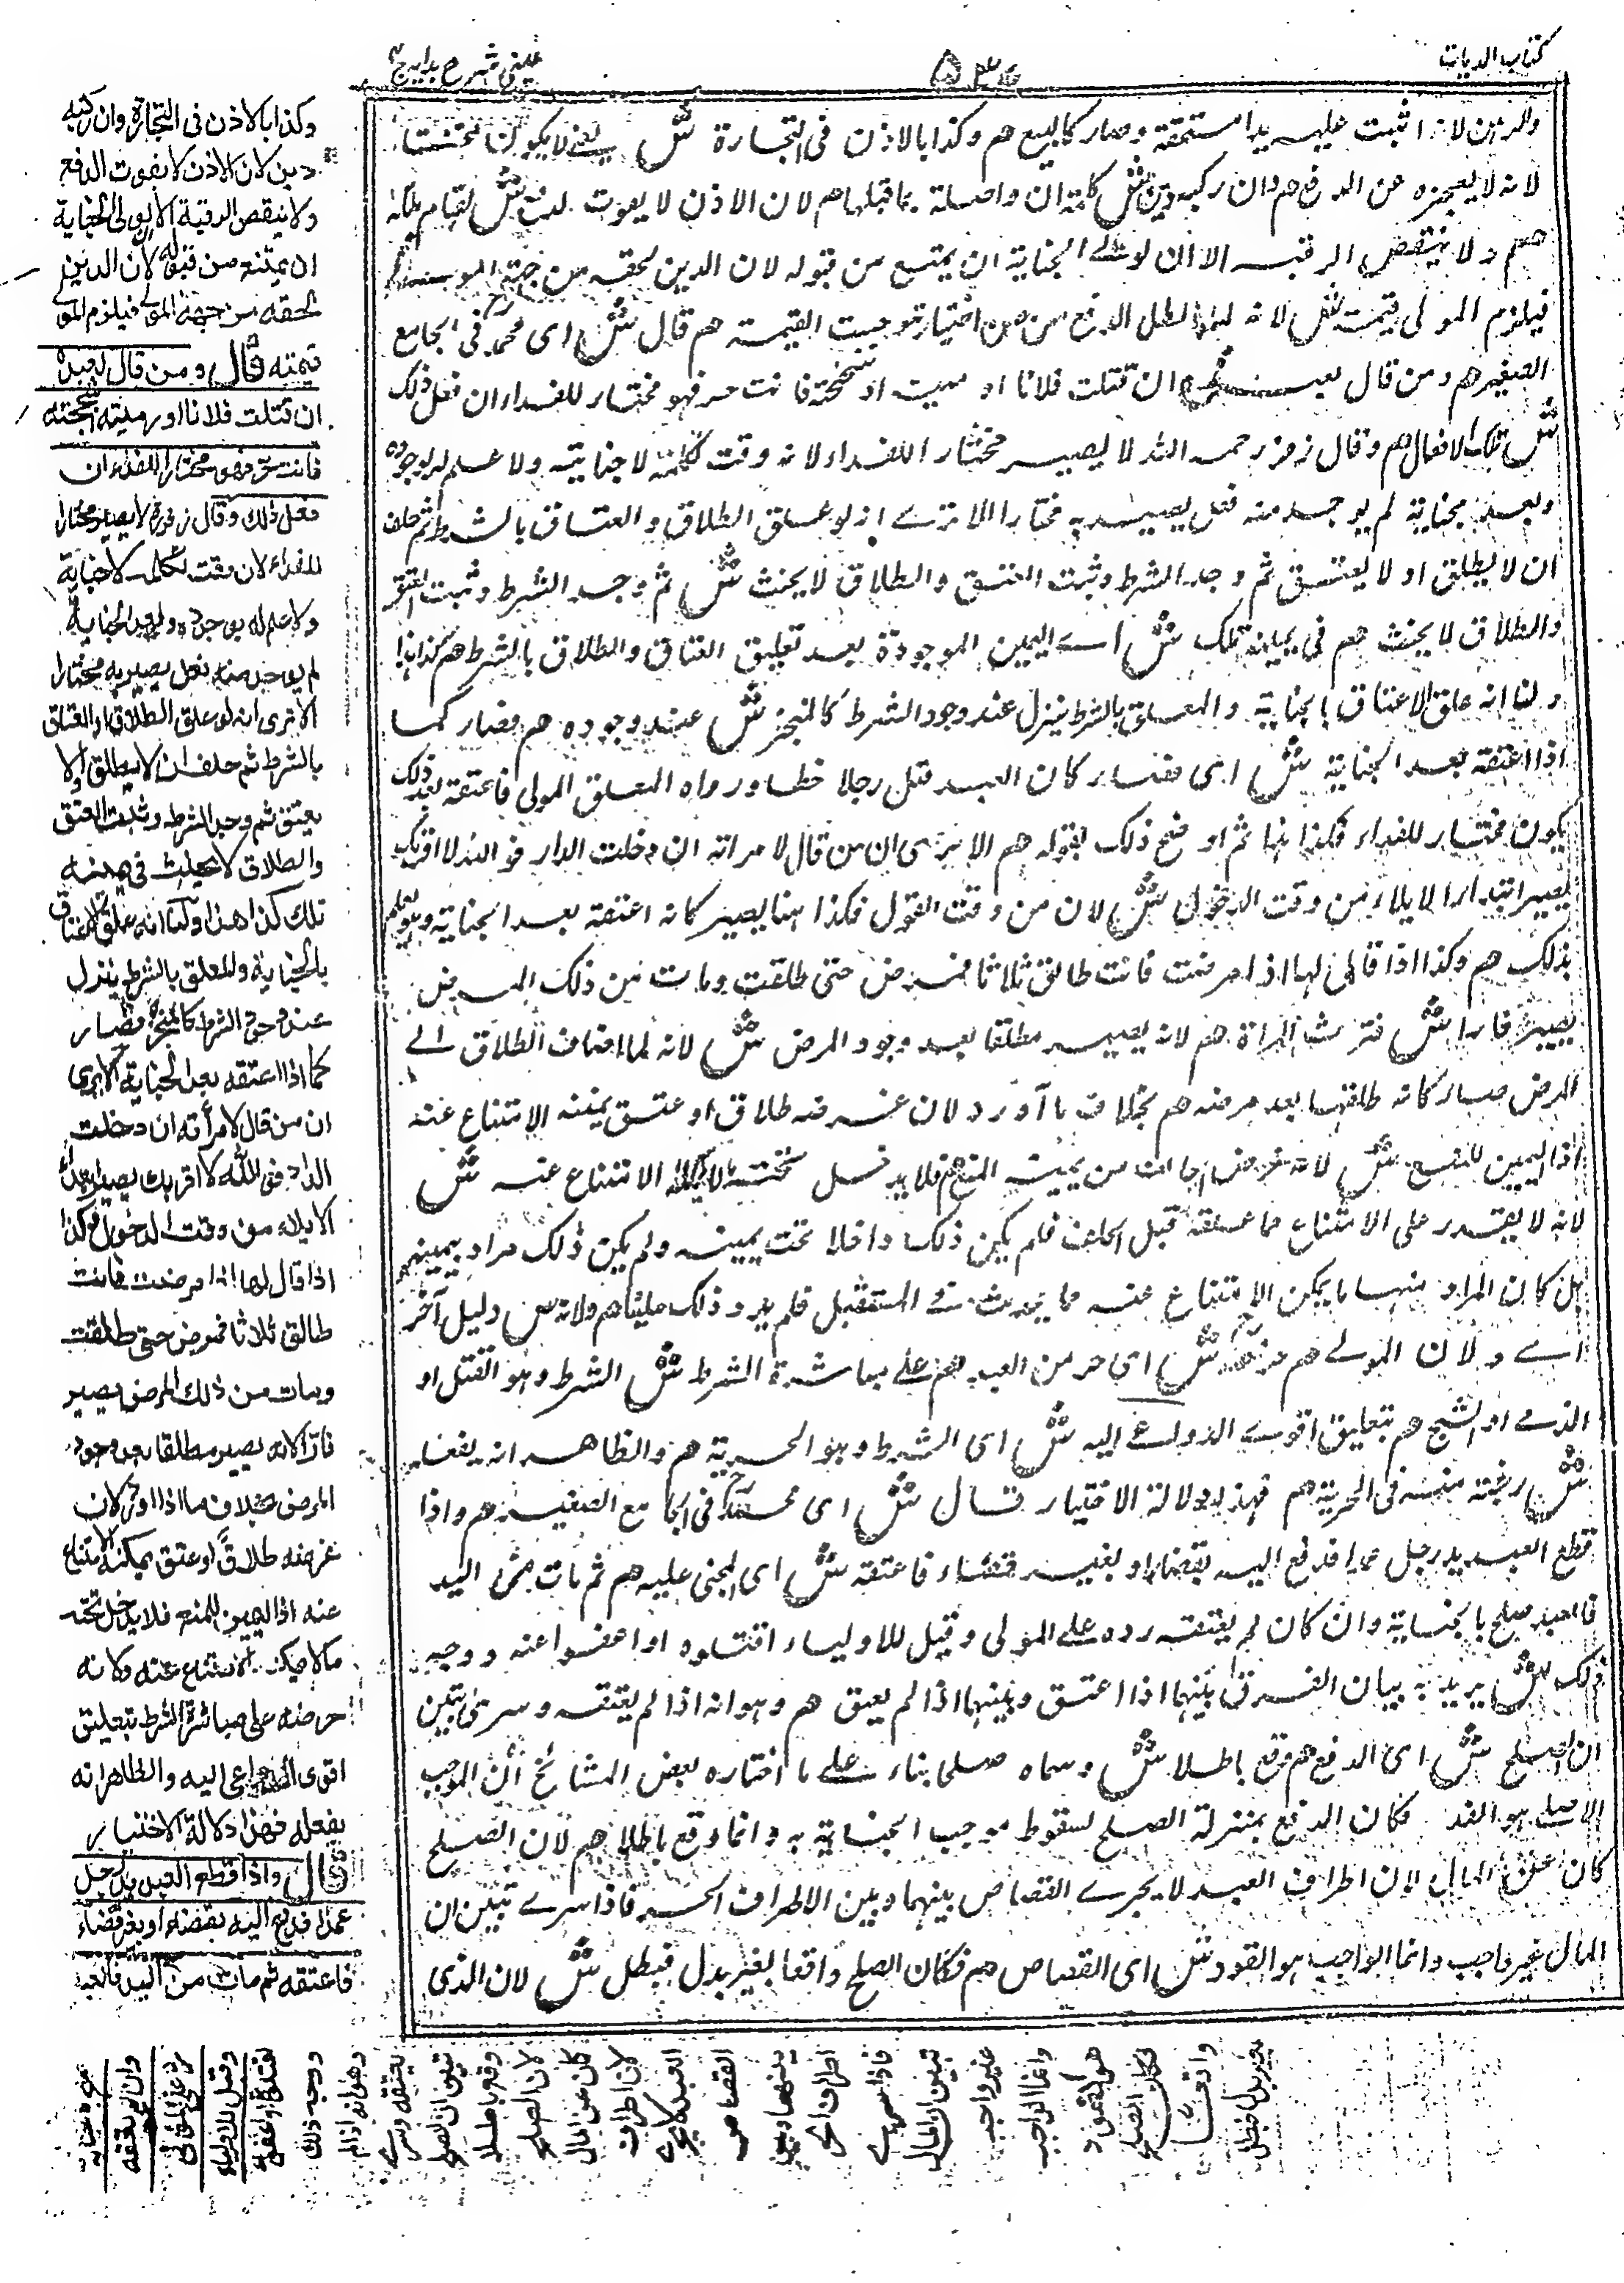 كتاب الديات
عينى شرح هدايه ج
والرهن لانه اثبت عليه يدا مستحقة وصار كالبيع هم وكذا بالاذن فى التجارة ش يعنى لا يكون مختارا
لانه لا يعجزه عن الدفع هم وان ركبه دين ش كلمة ان واصلة بما قبلها هم لان الاذن لا يفوت الدفع ش لقيام ملكه
هم ولا ينقص الرقبة الا ان لولى الجناية ان يمتنع من قبوله لان الدين لحقه من جهة المولى
فيلزم المولى قيمته ش لانه هم قال ش اى محمد فى الجامع
الصغير هم ومن قال لعبده ان قتلت فلانا او رميته او شججته فانت حر فهو مختار للفداء ان فعل ذلك
ش تلك الافعال هم وقال زفر رحمه الله لا يصير مختارا للفداء لانه وقت تكلمه لا جناية ولا علم له بوجوده
وبعد الجناية لم يوجد منه فعل يصير به مختارا الا ترى انه لو علق الطلاق والعتاق بالشرط ثم حلف
ان لا يطلق او لا يعتق ثم وجد الشرط وثبت العتق والطلاق لا يحنث ش ثم وجد الشرط وثبت العتق
والطلاق لا يحنث هم فى يمينه تلك ش اى اليمين الموجودة بعد تعليق العتاق والطلاق بالشرط هم كذا هذا
ولنا انه علق الاعتاق بالجناية والمعلق بالشرط ينزل عند وجود الشرط كالمنجز ش عند وجوده هم فصار كما
اذا اعتقه بعد الجناية ش اى فصار كان العبد قتل رجلا خطا ورواه المعلق المولى فاعتقه بعد ذلك
يكون مختار للفداء فكذا هنا ثم اوضح ذلك بقوله هم الا يرى ان من قال لامراته ان دخلت الدار فوالله لا اقربك
يصير ابتداء الايلاء من وقت الدخول ش لان من وقت القول فكذا هنا يصير كانه اعتقه بعد الجناية وهو يعلم
بذلك هم وكذا اذا قال لها اذا مرضت فانت طالق ثلاثا فمرض حتى طلقت ومات من ذلك المرض
يصير فارا ش فترث المراة هم لانه يصير مطلقا بعد وجود المرض ش لانه لما اضاف الطلاق الى
المرض صار كانه طلقها بعد مرضه هم بخلاف ما اورد لان غرضه طلاق او عتق يمكنه الامتناع عنه
اذ اليمين للمنع ش لان غرض الحالف من يمينه المنع هم فلا يدخل تحته ما لا يمكنه الامتناع عنه ش
لانه لا يقدر على الامتناع مما علقه قبل الحلف فلم يكن ذلك داخلا تحت يمينه ولم يكن ذلك مراد بيمينه
بل كان المراد منها ما يمكن الامتناع عنه مما يحدث فى المستقبل فلم يرد ذلك علينا هم ولانه ش دليل آخر
اى ولان المولى هم حرضه ش اى حرض العبد هم على مباشرة الشرط ش الشرط وهو القتل او
الرمى او الشج هم بتعليق اقوى الدواعى اليه ش اى الشرط وهو الحرية هم والظاهر انه يفعله
ش رغبة منه فى الحرية هم فهذا دلالة الاختيار قال ش اى محمد فى الجامع الصغير هم واذا
قطع العبد يد رجل عمدا فدفع اليه بقضاء او بغير قضاء فاعتقه ش اى المجنى عليه هم ثم مات من اليد
فالعبد صلح بالجناية وان كان لم يعتقه رده على المولى وقيل للاولياء اقتلوه او اعفوا عنه ووجه
ذلك ش يريد به بيان الفرق بينهما اذا اعتق وبينهما اذا لم يعتق هم وهو انه اذا لم يعتقه وسرى تبين
ان الصلح ش اى الدفع هم وقع باطلا ش وسماه صلحا بناء على ما اختاره بعض المشائخ ان الموجب
الاصلى هو الفداء فكان الدفع بمنزلة الصلح لسقوط موجب الجناية به وانما وقع باطلا هم لان الصلح
كان عن المال لان اطراف العبد لا يجرى القصاص بينها وبين الاطراف الحر فاذا سرى تبين ان
المال غير واجب وانما الواجب هو القود ش اى القصاص هم فكان الصلح واقعا بغير بدل فبطل ش لان الذى
وكذا بالاذن فى التجارة وان ركبه
دين لان الاذن لا يفوت الدفع
ولا ينقص الرقبة الا ان لولى الجناية
ان يمتنع من قبوله لان الدين
لحقه من جهة المولى فيلزم المولى
قيمته قال ومن قال لعبده
ان قتلت فلانا او رميته او شججته
فانت حر فهو مختار للفداء ان
فعل ذلك وقال زفر لا يصير مختارا
للفداء لان وقت تكلمه لا جناية
ولا علم له بوجوده وبعد الجناية
لم يوجد منه فعل يصير به مختارا
الا ترى انه لو علق الطلاق او العتاق
بالشرط ثم حلف ان لا يطلق او لا
يعتق ثم وجد الشرط وثبت العتق
والطلاق لا يحنث فى يمينه
تلك كذا هذا ولنا انه علق الاعتاق
بالجناية والمعلق بالشرط ينزل
عند وجود الشرط كالمنجز فصار
كما اذا اعتقه بعد الجناية الا يرى
ان من قال لامرأته ان دخلت
الدار فوالله لا اقربك يصير ابتداء
الايلاء من وقت الدخول وكذا
اذا قال لها اذا مرضت فانت
طالق ثلاثا فمرض حتى طلقت
ومات من ذلك المرض يصير
فارا لانه يصير مطلقا بعد وجود
المرض بخلاف ما اذا اورد لان
غرضه طلاق او عتق يمكنه الامتناع
عنه اذ اليمين للمنع فلا يدخل تحته
ما لا يمكنه الامتناع عنه ولانه
حرضه على مباشرة الشرط بتعليق
اقوى الدواعى اليه والظاهر انه
يفعله فهذا دلالة الاختيار
قال واذا قطع العبد يد رجل
عمدا فدفع اليه بقضاء او بغير قضاء
فاعتقه ثم مات من اليد فالعبد
صلح بالجناية
وان لم يعتقه
رد على المولى
وقيل للاولياء
اقتلوه او اعفوا عنه
ووجه ذلك
وهو انه اذا لم
يعتقه وسرى
تبين ان الصلح
وقع باطلا
لان الصلح
كان عن المال
لان اطراف
العبد لا يجرى
القصاص
بينها وبين
اطراف الحر
فاذا سرى
تبين ان المال
غير واجب
وانما الواجب
هو القود
فكان الصلح
واقعا
بغير بدل فبطل